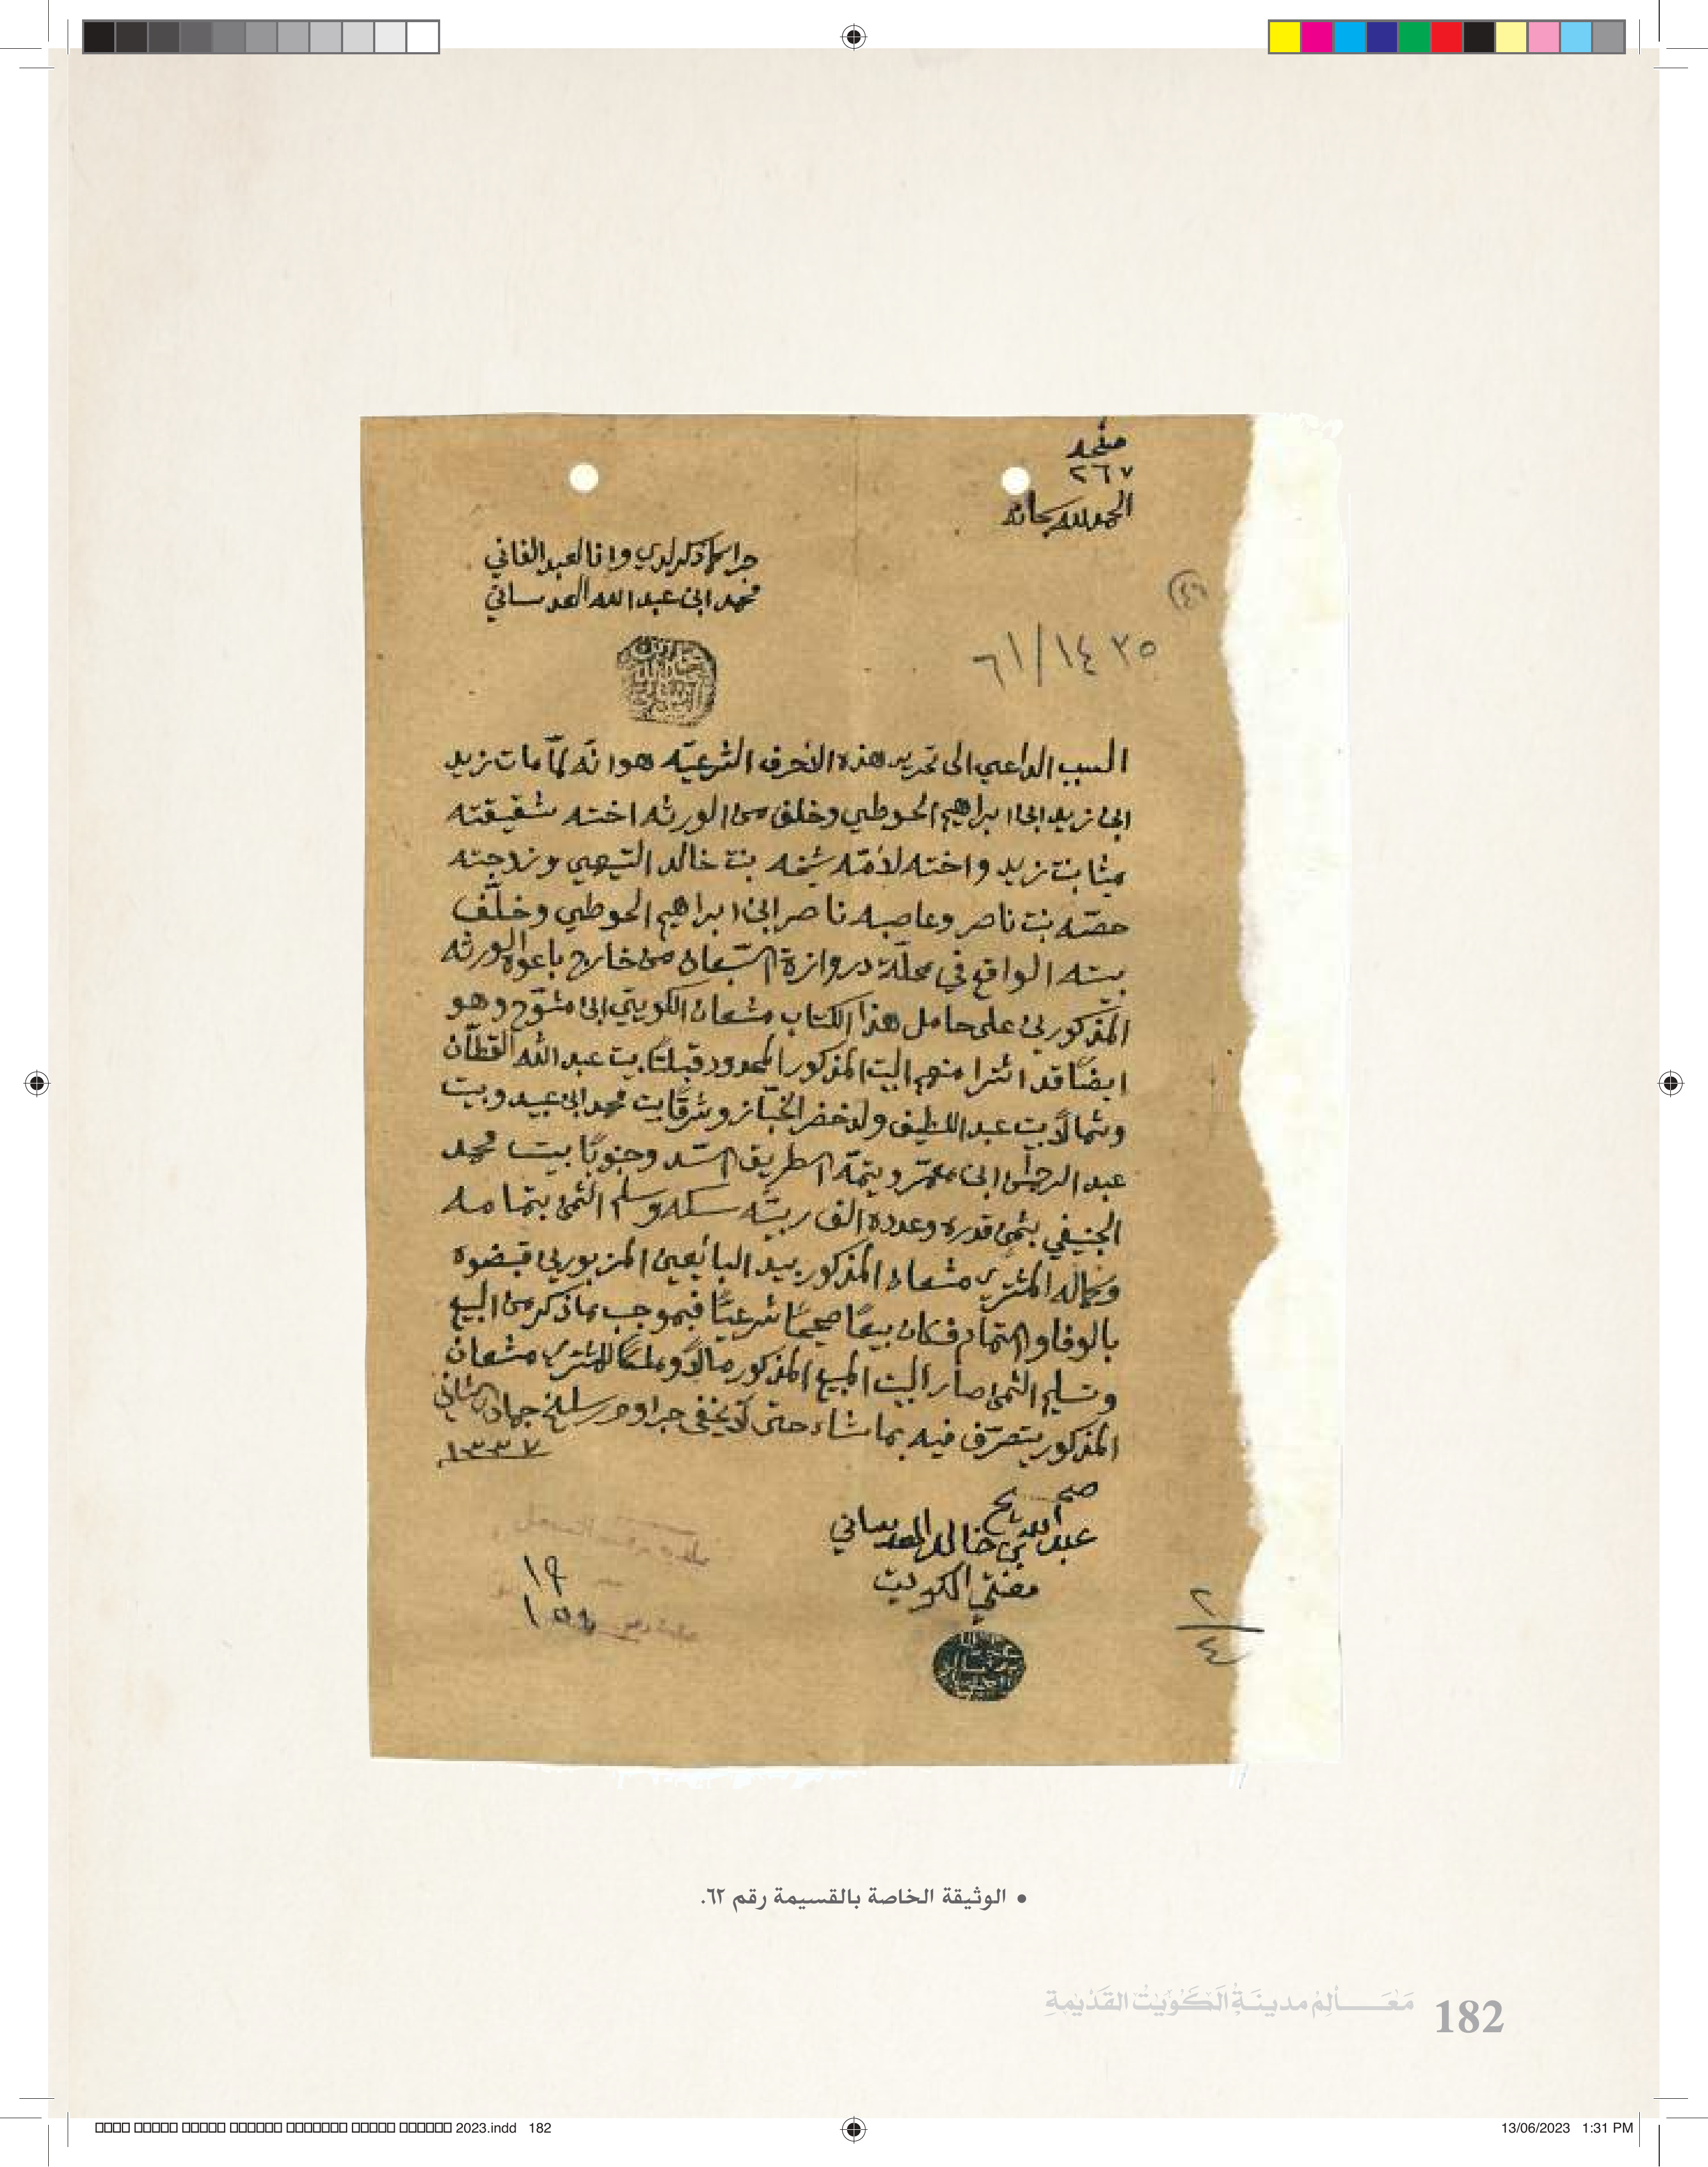 صفحه
٢٦٧
الحمد لله سبحانه
جرا كما ذكر لدي وانا العبد الفاني
محمد ابن عبد الله العدساني
١٤٣٥/٦١
السبب الداعي الى تحرير هذه الأحرف الشرعيّه هو انّه لمّا مات زيد
ابن زيد ابن ابراهيم الحوطي وخلف من الورثه اخته شقيقته
ميثا بنت زيد واخته لأمّه شيخه بنت خالد التيهي وزوجته
حصّه بنت ناصر وعاصبه ناصر ابن ابراهيم الحوطي وخلّف
بيته الواقع في محلّة دروازة السّبعان من خارج باعوه الورثه
المذكورين على حامل هذا الكتاب مشعان الكويتي ابن مشوّح وهو
ايضًا قد اشترا منهم البيت المذكور المحدود قبلتًا بيت عبد الله القطّان
وشمالًا بيت عبد اللطيف ولد خضر الخبّاز وشرقًا بيت محمد ابن عبيد وبيت
عبد الرحمن ابن معمّر ويتمّه الطريق السّد وجنوبًا بيت محمد
الجنيفي بثمن قدره وعدده الف ربيّه سكه وسلم الثمن بتمامه
وكماله المشتري مشعان المذكور بيد البايعين المزبورين قبضوه
بالوفا والتمام فكان بيعًا صحيحًا شرعيًّا فبموجب ماذكر من البيع
وتسليم الثمن صار البيت المبيع المذكور مالًا وملكًا للمشتري مشعان
المذكور يتصرّف فيه بما شاء حتى لا يخفى جرا وحرر سلخ جماد الثاني
١٣٣٧
صحيح
عبد الله بن خالد العدساني
مفتي الكويت
١٩
٢
٤
• الوثيقة الخاصة بالقسيمة رقم ٦٢.
مَعَـــالِمُ مدينَـةِ الكُوَيْتْ القَدْيِمةِ 182
2023.indd 182
13/06/2023 1:31 PM